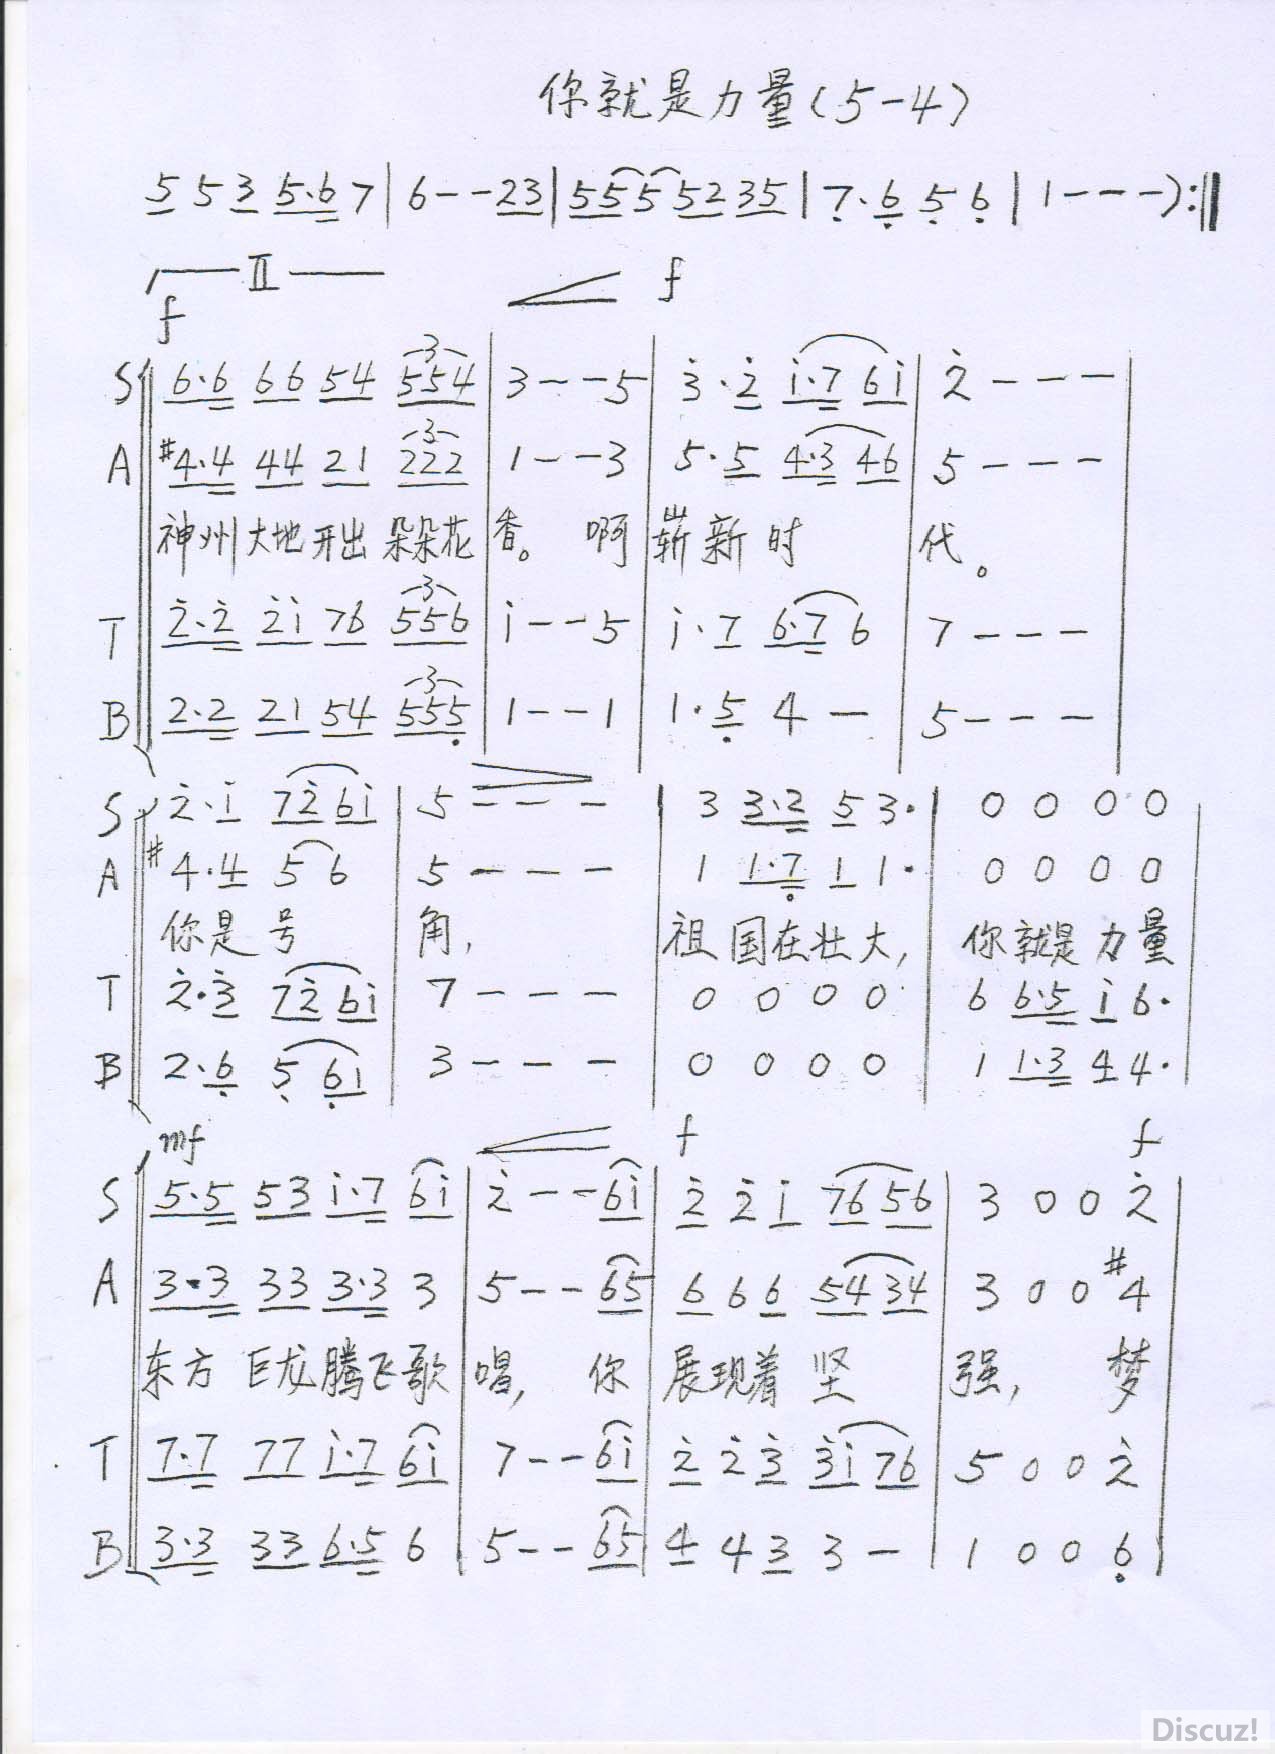 你就是力量(5-4)
5 5 3 5·6 7 | 6 - - 23 | 55 5 52 35 | 7· 6 5 6 | 1 - - - ):‖
Ⅱ
f f
S 6·6 66 54 554 | 3 - - 5 | 3·2 i·7 6i | 2 - - - |
3
A #4·4 44 21 222 | 1 - - 3 | 5·5 4·3 46 | 5 - - - |
神州大地开出朵朵花 香。 啊 崭新时 代。
3
T 2·2 2i 76 556 | i - - 5 | i·7 6·7 6 | 7 - - - |
3
B 2·2 21 54 555 | 1 - - 1 | 1·5 4 - | 5 - - - |
S 2·i 72 6i | 5 - - - | 3 3·2 5 3· | 0 0 0 0 |
A #4·4 5 6 | 5 - - - | 1 1·7 1 1· | 0 0 0 0 |
你是号 角, 祖国在壮大, 你就是力量
T 2·3 72 6i | 7 - - - | 0 0 0 0 | 6 6·5 i 6· |
B 2·6 5 61 | 3 - - - | 0 0 0 0 | 1 1·3 4 4· |
mf f f
S 5·5 53 i·7 6i | 2 - - 6i | 2 2 i 76 56 | 3 0 0 2 |
A 3·3 33 3·3 3 | 5 - - 65 | 6 6 6 54 34 | 3 0 0 #4 |
东方巨龙腾飞歌 唱, 你 展现着坚 强, 梦
T 7·7 77 i·7 6i | 7 - - 6i | 2 2 3 3i 76 | 5 0 0 2 |
B 3·3 33 6·5 6 | 5 - - 65 | 4 4 3 3 - | 1 0 0 6 |
Discuz!